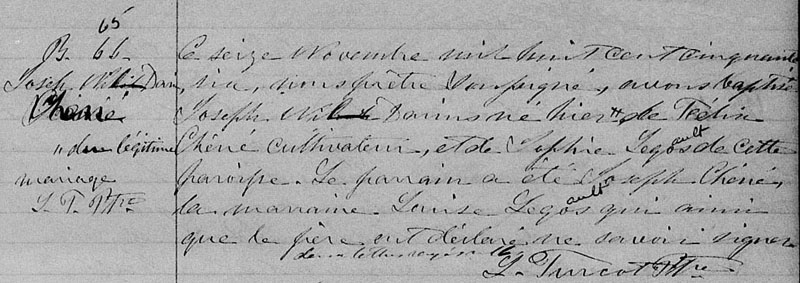 65
B. 66
Joseph
Chené
" du légitime
mariage
L. T. Ptre
Ce seize Novembre mil huit cent cinquante
six, nous prêtre soussigné, avons baptisé
Joseph né hier " de
Chéné cultivateur, et de Sophie Legault de cette
paroisse. Le parrain a été Joseph Chené,
la marraine Louise Legault qui ainsi
que le père ont déclaré ne savoir signer
L. Turcot Ptre